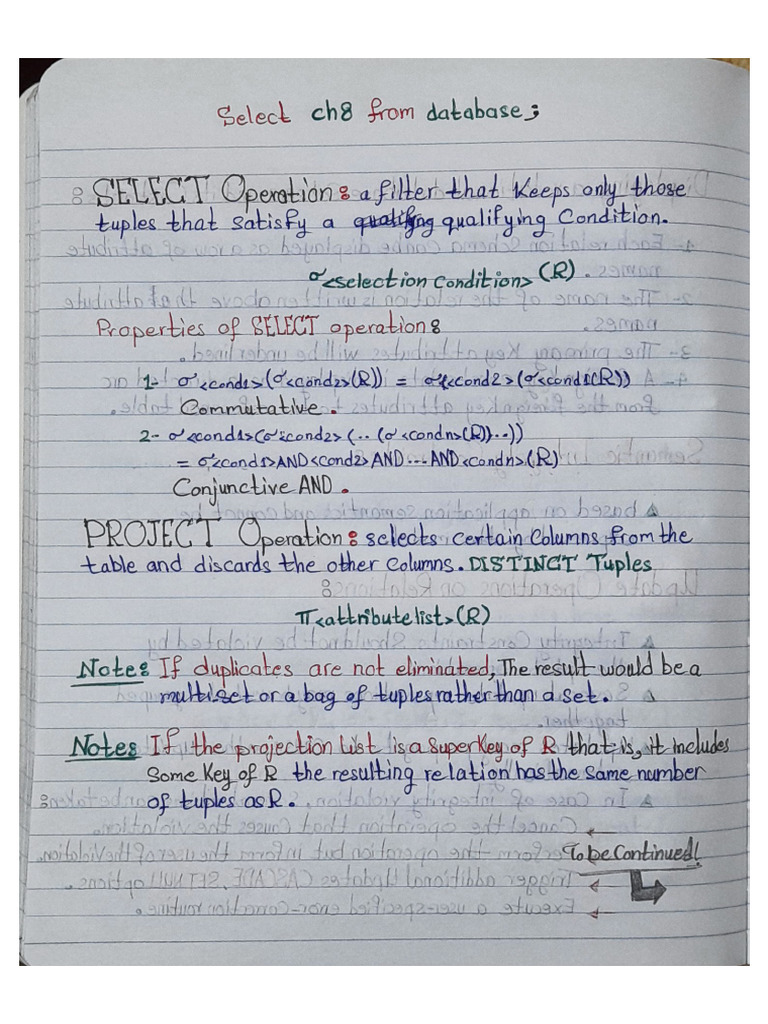 Select ch8 from database;
SELECT Operation: a filter that Keeps only those
tuples that satisfy a qualifying Condition.
σ<selection condition>(R)
Properties of SELECT operation:
1- σ<cond1>(σ<cond2>(R)) = σ<cond2>(σ<cond1(R))
Commutative.
2- σ<cond1>(σ<cond2>(..(σ<condn>(R))..))
= σ<cond1>AND<cond2>AND...AND<condn>(R)
Conjunctive AND.
PROJECT Operation: selects certain Columns from the
table and discards the other Columns. DISTINCT Tuples
π<attribute list>(R)
Note: If duplicates are not eliminated, The result would be a
multiset or a bag of tuples rather than a set.
Note: If the projection list is a superKey of R that is, it includes
Some Key of R the resulting relation has the same number
of tuples as R.
To be Continued!